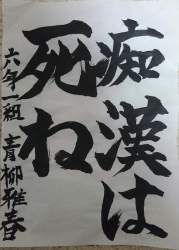 痴漢は
死ね
六年一組 青柳雅春